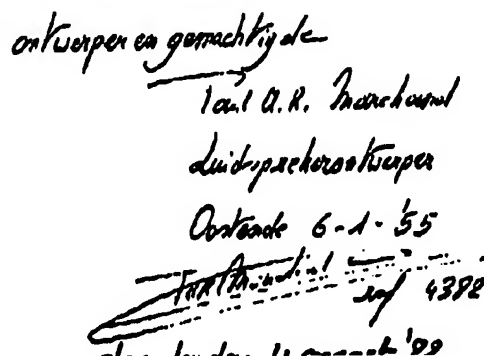 ontwerper en gemachtigde
Paul A.R. Marchand
Luidsprekerontwerper
Oostende 6-1-'55
ref 4382